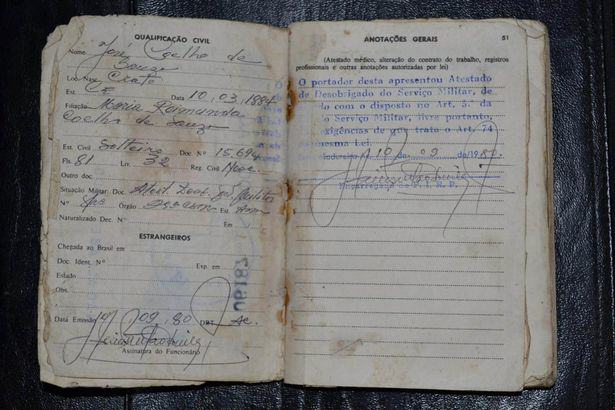 QUALIFICAÇÃO CIVIL
Nome José Coelho de
Souza
Loc. Nasc. Crato
Est. Data 10, 03, 1884
Filiação Maria Raimunda
Coelho de Souza
Est. Civil Solteiro Doc. Nº 15.694
Fls. 81 Liv. 32 Reg. Civil Nasc.
Outro doc.
Situação Militar: Doc.
Nº Órgão Est.
Naturalizado Dec. Nº Em
ESTRANGEIROS
Chegada ao Brasil em
Doc. Ident. Nº Exp. em
Estado
Obs.
Data Emissão 10, 09, 80 DRT Ac.
Assinatura do Funcionário
06187
ANOTAÇÕES GERAIS 51
(Atestado médico, alteração do contrato do trabalho, registros
profissionais e outras anotações autorizadas por lei)
O portador desta apresentou Atestado
de Desobrigado do Serviço Militar, de
do com o disposto no Art. 5.º da
do Serviço Militar, livre portanto,
exigências de que trato o Art. 74
mesma Lei.
10 de 09 de 1980